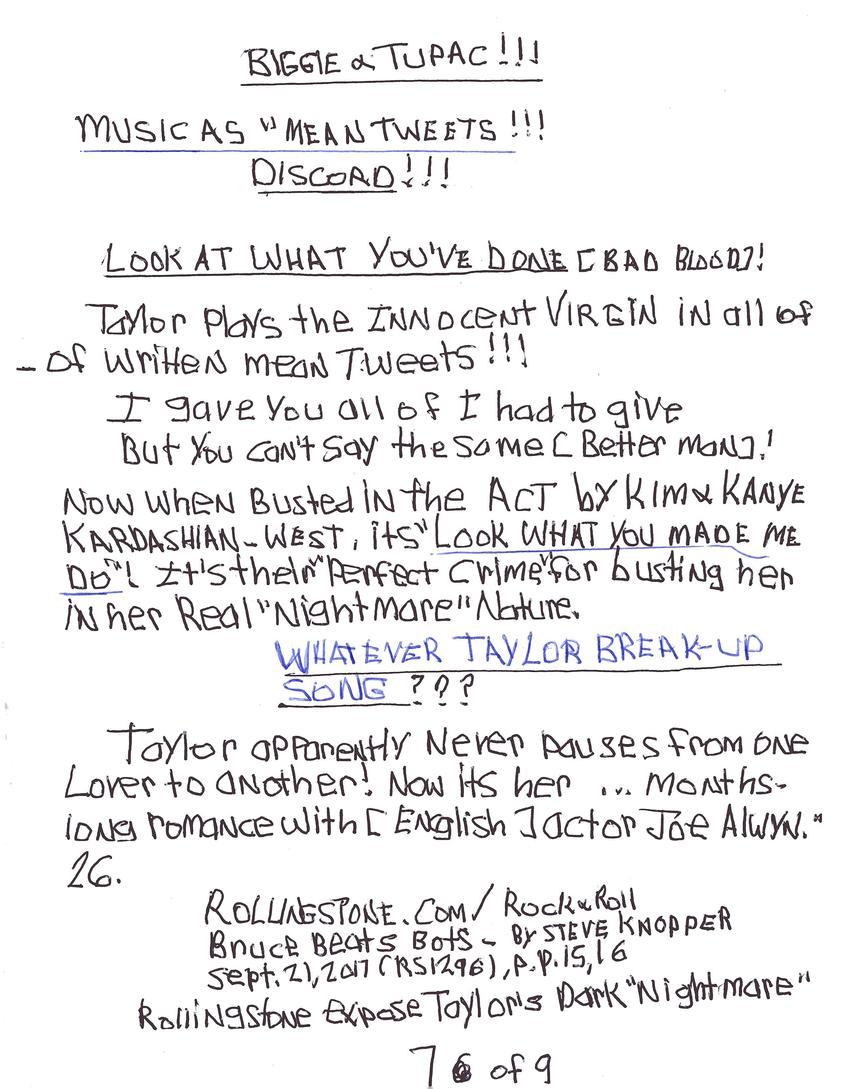 BIGGIE & TUPAC!!!
MUSIC AS "MEAN TWEETS!!!
DISCORD!!!
LOOK AT WHAT YOU'VE DONE [BAD BLOOD]!
Taylor plays the INNOCENT VIRGIN in all of
- of written mean Tweets!!!
I gave you all of I had to give
But you can't say the same [Better man].!
Now when Busted in the ACT by KIM & KANYE
KARDASHIAN-WEST, its "LOOK WHAT YOU MADE ME
DO"! It's their "Perfect Crime" for busting her
in her Real "Nightmare" Nature.
WHATEVER TAYLOR BREAK-UP
SONG ???
Taylor apparently Never pauses from one
Lover to another! Now its her ... months-
long romance with [English] actor Joe Alwyn."
26.
ROLLINGSTONE.COM/ Rock & Roll
Bruce Beats Bots - By STEVE KNOPPER
Sept. 21, 2017 (RS1296), p.p. 15, 16
RollingStone Expose Taylor's Dark "Nightmare"
7 of 9